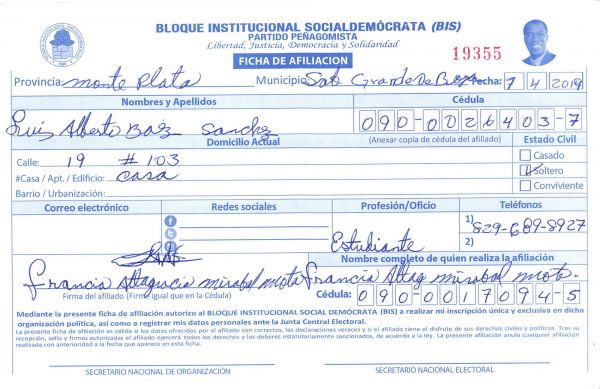 BLOQUE INSTITUCIONAL SOCIALDEMÓCRATA (BIS)
PARTIDO PEÑAGOMISTA
Libertad, Justicia, Democracia y Solidaridad
FICHA DE AFILIACION
19355
Provincia: Monte Plata Municipio: Sab Grande De Boya Fecha: 7 4 2019
Nombres y Apellidos Cédula
Luis Alberto Baéz Sanchez 090-0026403-7
Domicilio Actual (Anexar copia de cédula del afiliado) Estado Civil
Calle: 19 # 103 Casado
#Casa / Apt. / Edificio: Casa Soltero
Barrio / Urbanización: Conviviente
Correo electrónico Redes sociales Profesión/Oficio Teléfonos
Estudiante 1) 829-689-8927
2)
Nombre completo de quien realiza la afiliación
Francia Altagracia mirabal mota Francia Altag mirabal mota.
Firma del afiliado (Firma igual que en la Cédula) Cédula: 090-0017094-5
Mediante la presente ficha de afiliación autorizo al BLOQUE INSTITUCIONAL SOCIAL DEMÓCRATA (BIS) a realizar mi inscripción única y exclusiva en dicha
organización política, así como a registrar mis datos personales ante la Junta Central Electoral.
La presente ficha de afiliación es válida a los datos ofrecidos por el afiliado son correctos, las declaraciones veraces y si el afiliado tiene el disfrute de sus derechos civiles y políticos. Tras su
recepción, sello y firmas autorizadas el afiliado ejercerá todos los derechos y los deberes estatutariamente sancionados, de acuerdo a la ley. La presente afiliación anula cualquier afiliación
realizada con anterioridad a la fecha que aparece en esta ficha.
SECRETARIO NACIONAL DE ORGANIZACIÓN SECRETARIO NACIONAL ELECTORAL